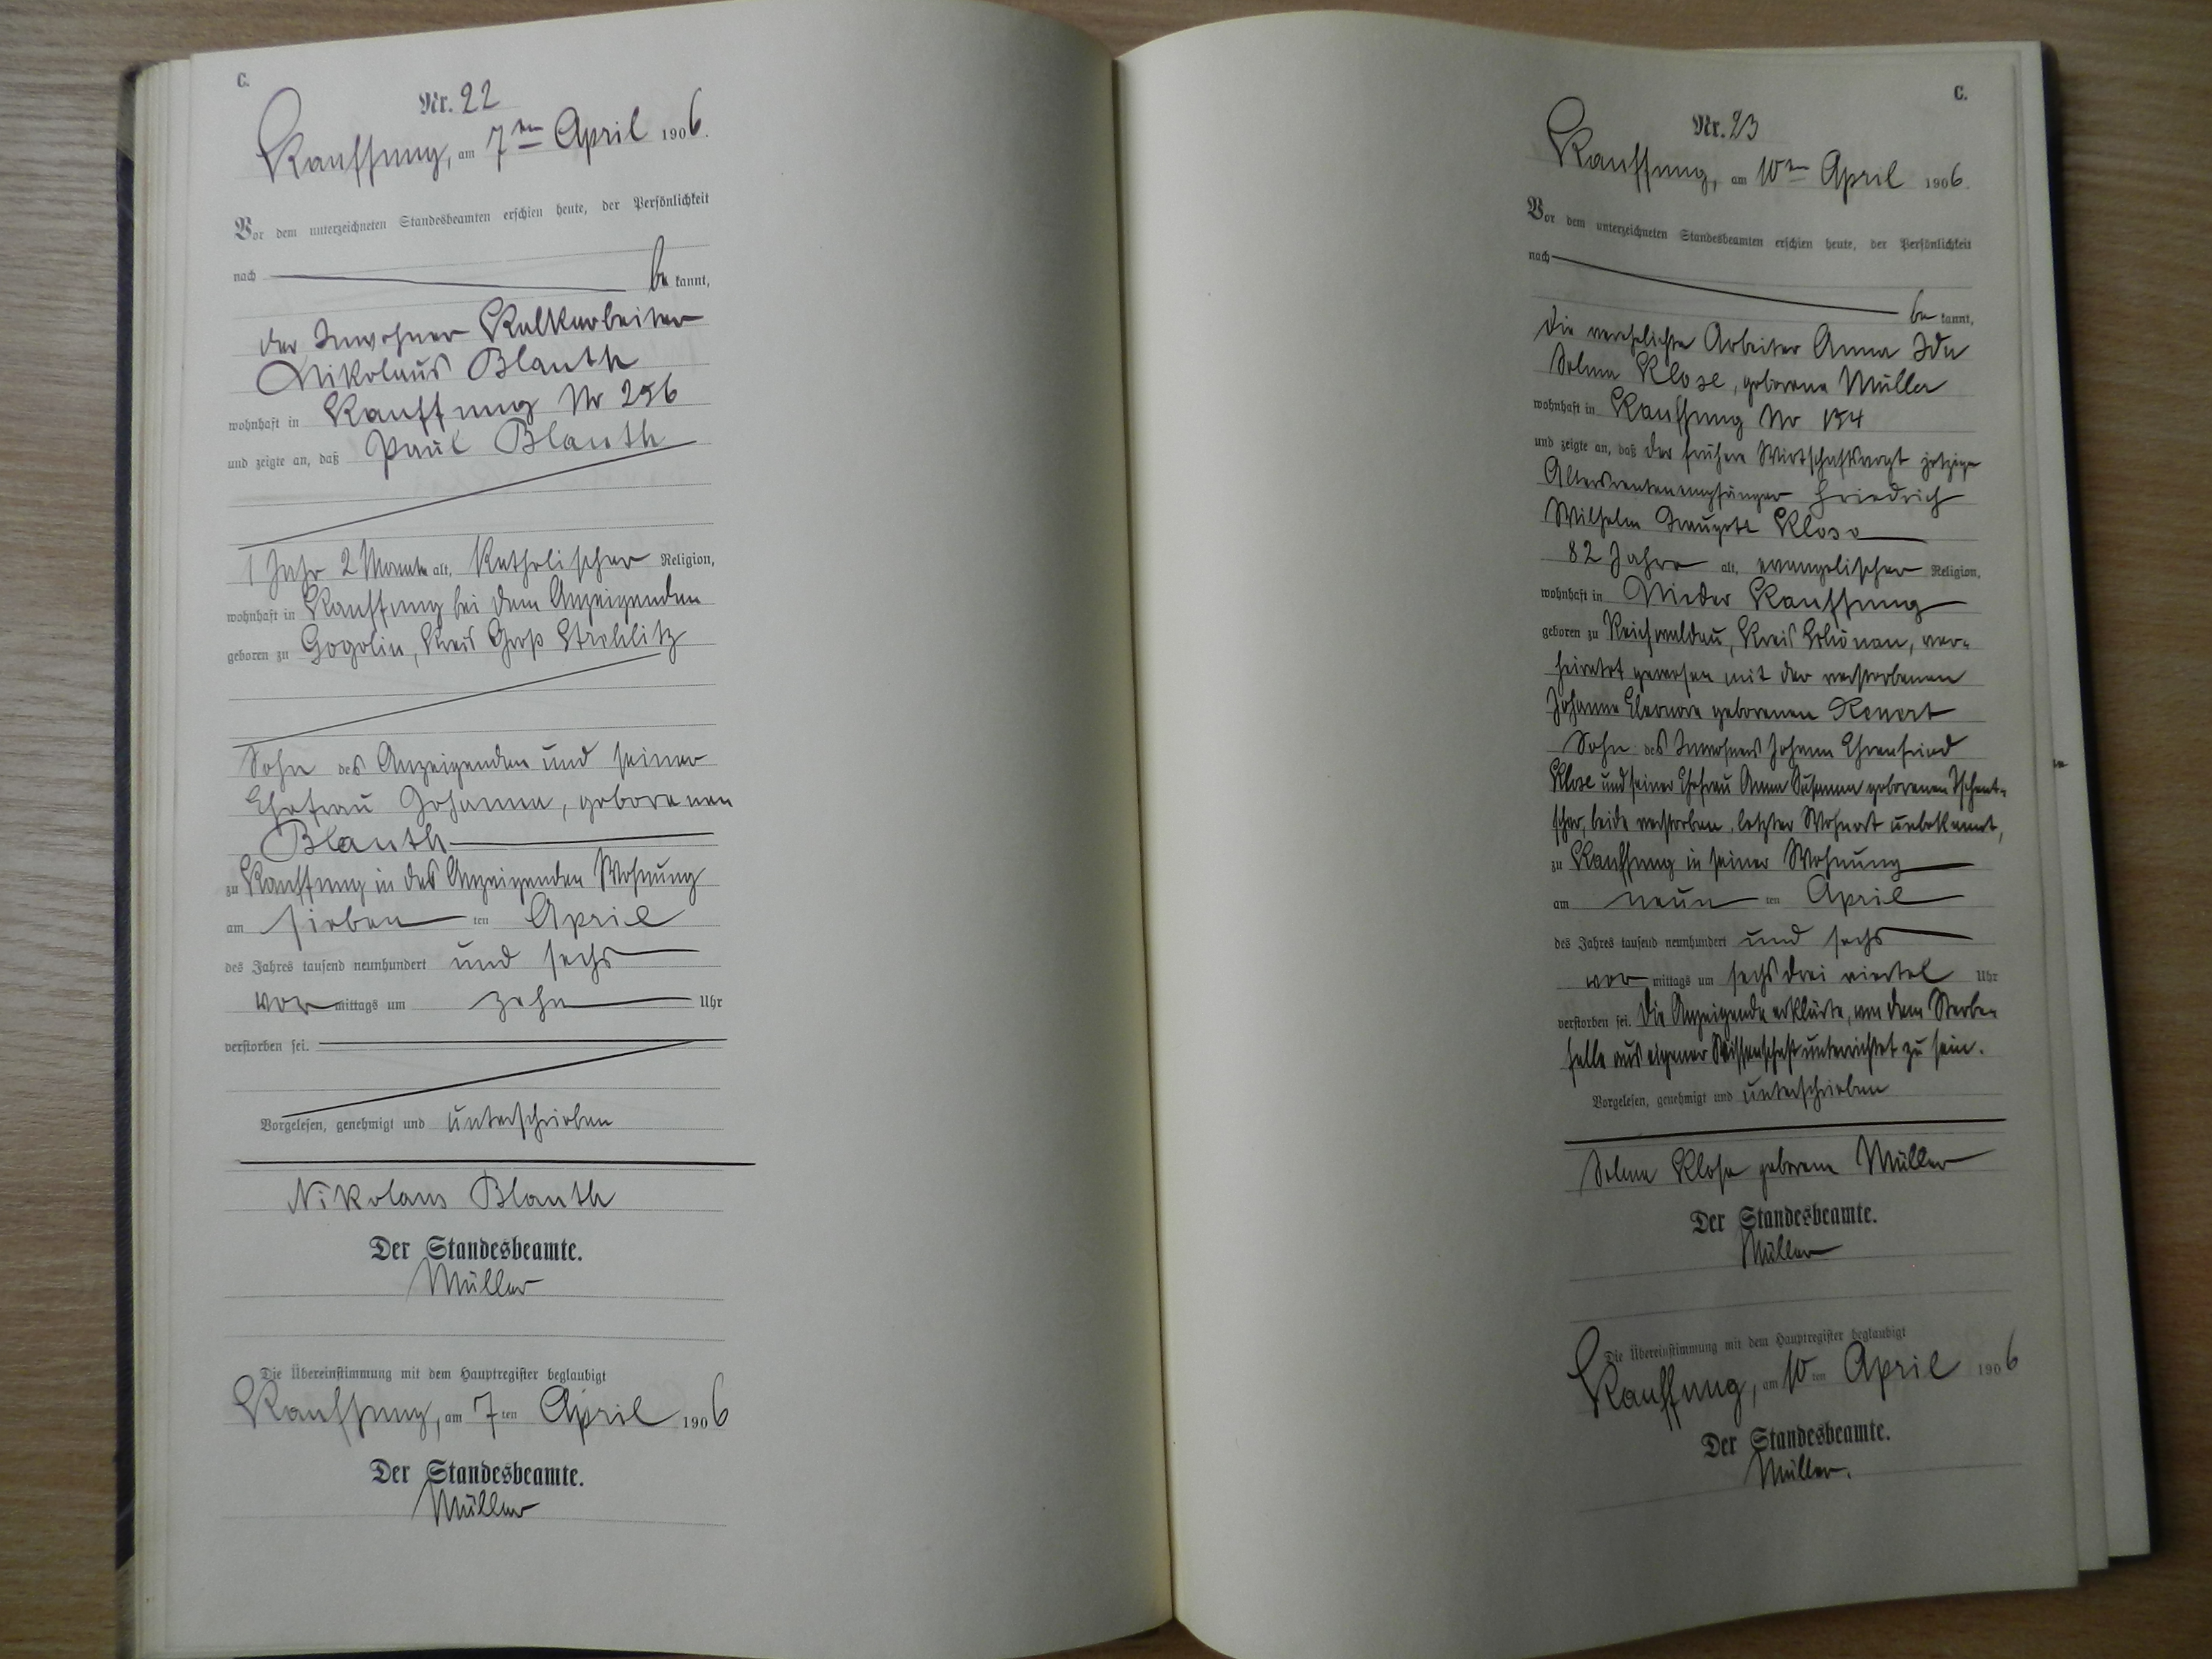 C.
Nr. 22
Kauffung, am 7ten April 1906.
Vor dem unterzeichneten Standesbeamten erschien heute, der Persönlichkeit
nach be kannt,
der Inwohner Kalkarbeiter
Nikolaus Blauth
wohnhaft in Kauffung Nr 256
und zeigte an, daß Paul Blauth
1 Jahr 2 Monate alt, katholischer Religion,
wohnhaft in Kauffung bei dem Anzeigenden
geboren zu Gogolin, Kreis Groß Strehlitz
Sohn des Anzeigenden und seiner
Ehefrau Johanna, geborenen
Blauth
zu Kauffung in des Anzeigenden Wohnung
am sieben ten April
des Jahres tausend neunhundert und sechs
vor mittags um zehn Uhr
verstorben sei.
Vorgelesen, genehmigt und unterschrieben
Nikolaus Blauth
Der Standesbeamte.
Müller
Die Übereinstimmung mit dem Hauptregister beglaubigt
Kauffung, am 7 ten April 1906
Der Standesbeamte.
Müller
C.
Nr. 23
Kauffung, am 10ten April 1906.
Vor dem unterzeichneten Standesbeamten erschien heute, der Persönlichkeit
nach be kannt,
die verehelichte Arbeiter Anna Ida
Selma Klose, geborene Müller
wohnhaft in Kauffung Nr 154
und zeigte an, daß der frühere Wirtschaftsvogt jetzige
Altersrentenempfänger Friedrich
Wilhelm Traugott Klose
82 Jahre alt, evangelischer Religion,
wohnhaft in Nieder Kauffung
geboren zu Reichwaldau, Kreis Schönau, ver-
heiratet gewesen mit der verstorbenen
Johanne Eleonore geborenen Renert
Sohn des Inwohners Johann Ehrenfried
Klose und seiner Ehefrau Anna Susanna geborenen Tschent-
scher, beide verstorben, letzter Wohnort unbekannt,
zu Kauffung in seiner Wohnung
am neun ten April
des Jahres tausend neunhundert und sechs
vor mittags um sechs drei viertel Uhr
verstorben sei. Die Anzeigende erklärte, von dem Sterbe-
falle aus eigener Wissenschaft unterrichtet zu sein.
Vorgelesen, genehmigt und unterschrieben
Selma Klose geborene Müller
Der Standesbeamte.
Müller
Die Übereinstimmung mit dem Hauptregister beglaubigt
Kauffung, am 10 ten April 1906
Der Standesbeamte.
Müller.